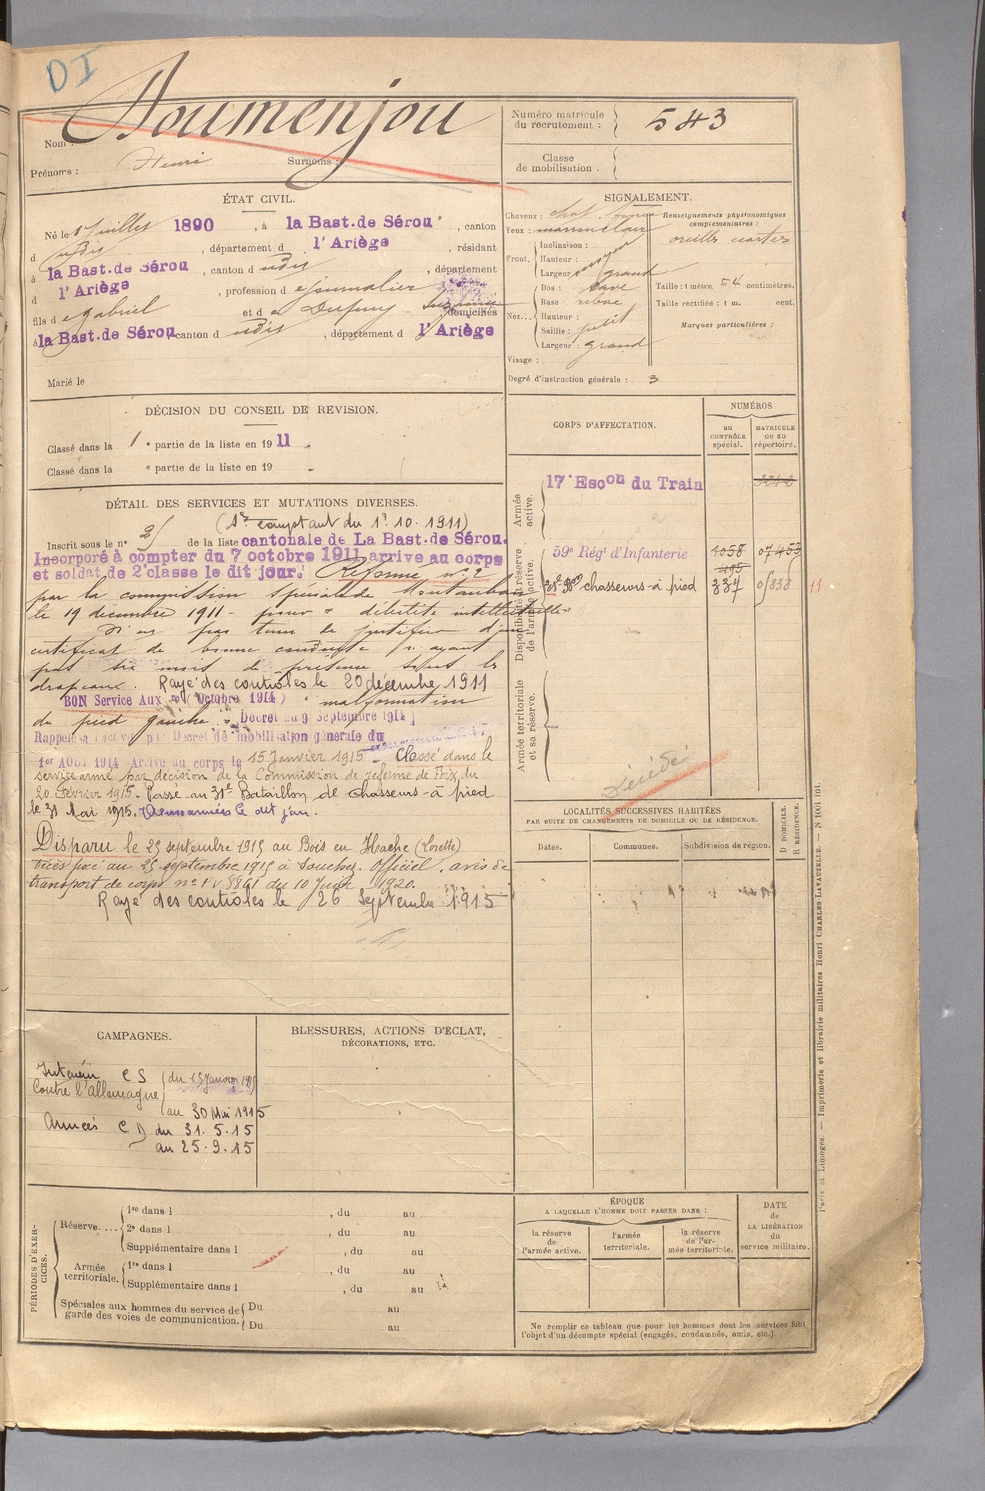 DI
Noumenjou
Nom :
Prénoms : Henri Surnoms :
Numéro matricule du recrutement : 543
Classe de mobilisation :
ÉTAT CIVIL.
Né le juillet 1890, à la Bast. de Sérou, canton
d udis, département d l'Ariège, résidant
à la Bast. de Sérou, canton d udis, département
d l'Ariège, profession d e journalier
fils d e Gabriel et d e Dupuy Suzanne domiciliés
à la Bast. de Sérou, canton d udis, département d l'Ariège
Marié le
SIGNALEMENT.
Cheveux : chat.
Yeux : marron clair
Front, Inclinaison : moyen
Hauteur :
Largeur grand
Nez... Dos : cave
Base relevé
Hauteur :
Saillie : petit
Largeur : grand
Visage :
Renseignements physionomiques complémentaires :
oreilles
Taille : 1 mètre, 54 centimètres.
Taille rectifiée : 1 m. cent.
Marques particulières :
Degré d'instruction générale : 3
DÉCISION DU CONSEIL DE REVISION.
Classé dans la 1 e partie de la liste en 1911.
Classé dans la e partie de la liste en 19 .
DÉTAIL DES SERVICES ET MUTATIONS DIVERSES.
(Sr comptant du 1er 10. 1911)
Inscrit sous le n° 25 de la liste cantonale de La Bast. de Sérou.
Incorporé à compter du 7 octobre 1911, arrive au corps
et soldat de 2e classe le dit jour. Réformé n° 2
par la commission spéciale de Montauban
le 19 décembre 1911 - pour « débilité intellectuelle »
N'a pas tenu le justifier d'un
certificat de bonne conduite n'ayant
pas six mois de présence sous les
drapeaux. Rayé des contrôles le 20 décembre 1911
BON Service Aux re (Octobre 1914) " malformation
du pied gauche " [Décret du 9 Septembre 1914]
Rappelé à l'activité par Décret de mobilisation générale du
1er AOUT 1914 - Arrivé au corps le 15 Janvier 1915 - Classé dans le
service armé par décision de la Commission de réforme de Foix du
20 Février 1915. Passé au 31e Bataillon de chasseurs-à pied
le 31 Mai 1915. Aux armées le dit jour.
Disparu le 25 septembre 1915 au Bois en Hache (Lorette)
décès fixé au 25 septembre 1915 à Souchez. Officiel. avis de
transport de corps n° PV 8861 du 10 Juin 1920.
Rayé des contrôles le 26 Septembre 1915
CORPS D'AFFECTATION.
NUMÉROS
AU CONTRÔLE spécial.
MATRICULE ou au répertoire.
Armée active.
17e Escon du Train
Disponibilité et réserve de l'armée active.
59e Régt d'Infanterie 1058 07453
495
31e Bon chasseurs-à pied 337 05838 11
Armée territoriale et sa réserve.
Décédé
LOCALITÉS SUCCESSIVES HABITÉES
PAR SUITE DE CHANGEMENTS DE DOMICILE OU DE RÉSIDENCE.
Dates. Communes. Subdivision de région. D DOMICILE. R RÉSIDENCE.
CAMPAGNES.
Intérieur CS (du 15 Janvier 1915
Contre l'Allemagne
au 30 Mai 1915
Armées CD du 31.5.15
au 25.9.15
BLESSURES, ACTIONS D'ÉCLAT,
DÉCORATIONS, ETC.
PÉRIODES D'EXERCICES.
Réserve.... 1re dans l , du au
2e dans l , du au
Supplémentaire dans l , du au
Armée territoriale. 1re dans l , du au
Supplémentaire dans l , du au
Spéciales aux hommes du service de garde des voies de communication. Du au
Du au
ÉPOQUE
A LAQUELLE L'HOMME DOIT PASSER DANS :
la réserve de l'armée active.
l'armée territoriale.
la réserve de l'armée territoriale.
DATE de LA LIBÉRATION du service militaire.
Ne remplir ce tableau que pour les hommes dont les services font
l'objet d'un décompte spécial (engagés, condamnés, omis, etc.).
Paris et Limoges. — Imprimerie et librairie militaires Henri CHARLES-LAVAUZELLE. — N 1001 int.